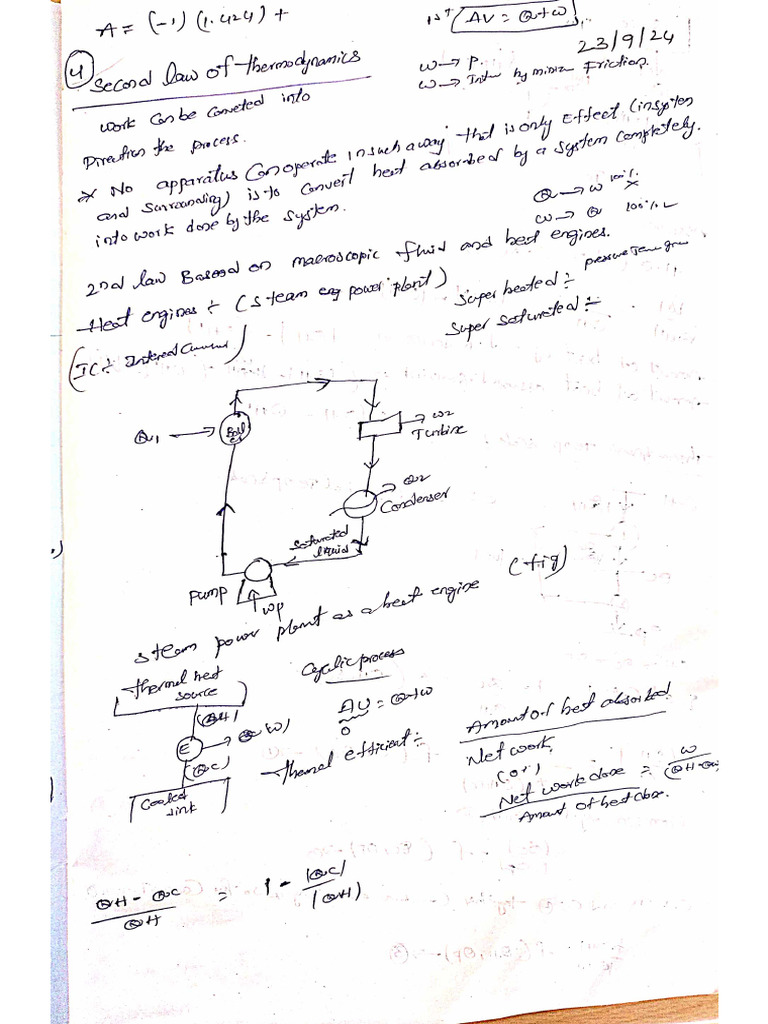 A = (-1) (1.424) +
1st ΔU = Q+W
23/9/24
④ Second law of thermodynamics
W → P.
W → by Friction.
work can be conveted into
Direction the process.
* No apparatus can operate in such away that is only Effect (insystem
and surrounding) is to convert heat absorbed by a system completely
into work done by the system.
Q → W 100% ×
W → Q 100% ✓
2nd law Based on macroscopic fluid and heat engines.
Heat engines ÷ (steam eng power plant)
Super heated ÷
Super saturated ÷
(IC ÷ )
Q1 →
Boiler
W2
Turbine
Q2
Condenser
saturated
liquid
Pump
Wp
(fig)
steam power plant as a heat engine
thermal heat
source
(QH)
E
(W)
(QC)
sink
Cyclic process
ΔU = Q+W
0
Thermal efficient ÷
Amount of heat absorbed
Net work
(or)
Net work done = W
Amount of heat done.
QH - QC / QH = 1 - |QC| / |QH|